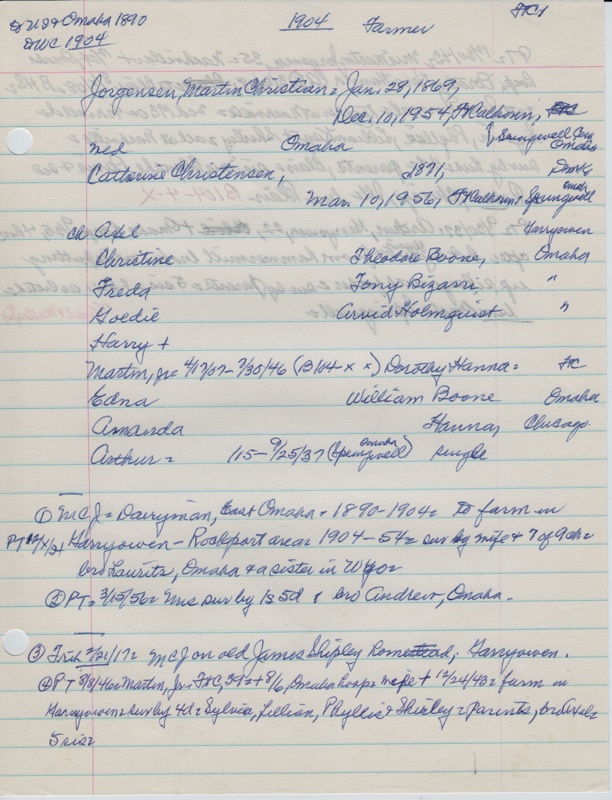 to US & Omaha 1890
to WC 1904
1904 Farmer
FC1
Jorgensen, Martin Christian = Jan. 28, 1869,
Dec. 10, 1954, Ft Calhoun,
Springwell Cem
Omaha
Med Omaha
Catherine Christensen, 1871, Dmk
Mar. 10, 1956, Ft Calhoun & Springwell
Omaha
ch Axel Harryowen
Christine Theodore Boone, Omaha
Freda Tony Bizarri "
Goedie Arvid Holmquist "
Harry +
Martin, Jr = 4/17/07 - 7/30/46 (B104 x x) Dorothy Hanna = FC
Edna William Boone Omaha
Amanda Hanna, Chicago
Arthur = /15 - 9/25/37 (Springwell Omaha) single
① MCJ = Dairyman, East Omaha = 1890-1904 = to farm in
Harryowen - Rockport area = 1904-54 = sur by wife & 7 of 9 ch =
bro Lauritz, Omaha & a sister in Wyo =
② PT = 3/15/56 = Mrs sur by 1s 5d & bro Andrew, Omaha.
③ Trib 2/21/17 = MCJ on old James Shipley homestead, Harryowen.
④ PT 8/8/46 = Martin, Jr = FtC, 39 = + 8/6, Omaha hosp = wife + 12/24/43 = farm in
Harryowen = sur by 4d = Sylvia, Lillian, Phyllis & Shirley = parents, bro Axel =
5 sis =